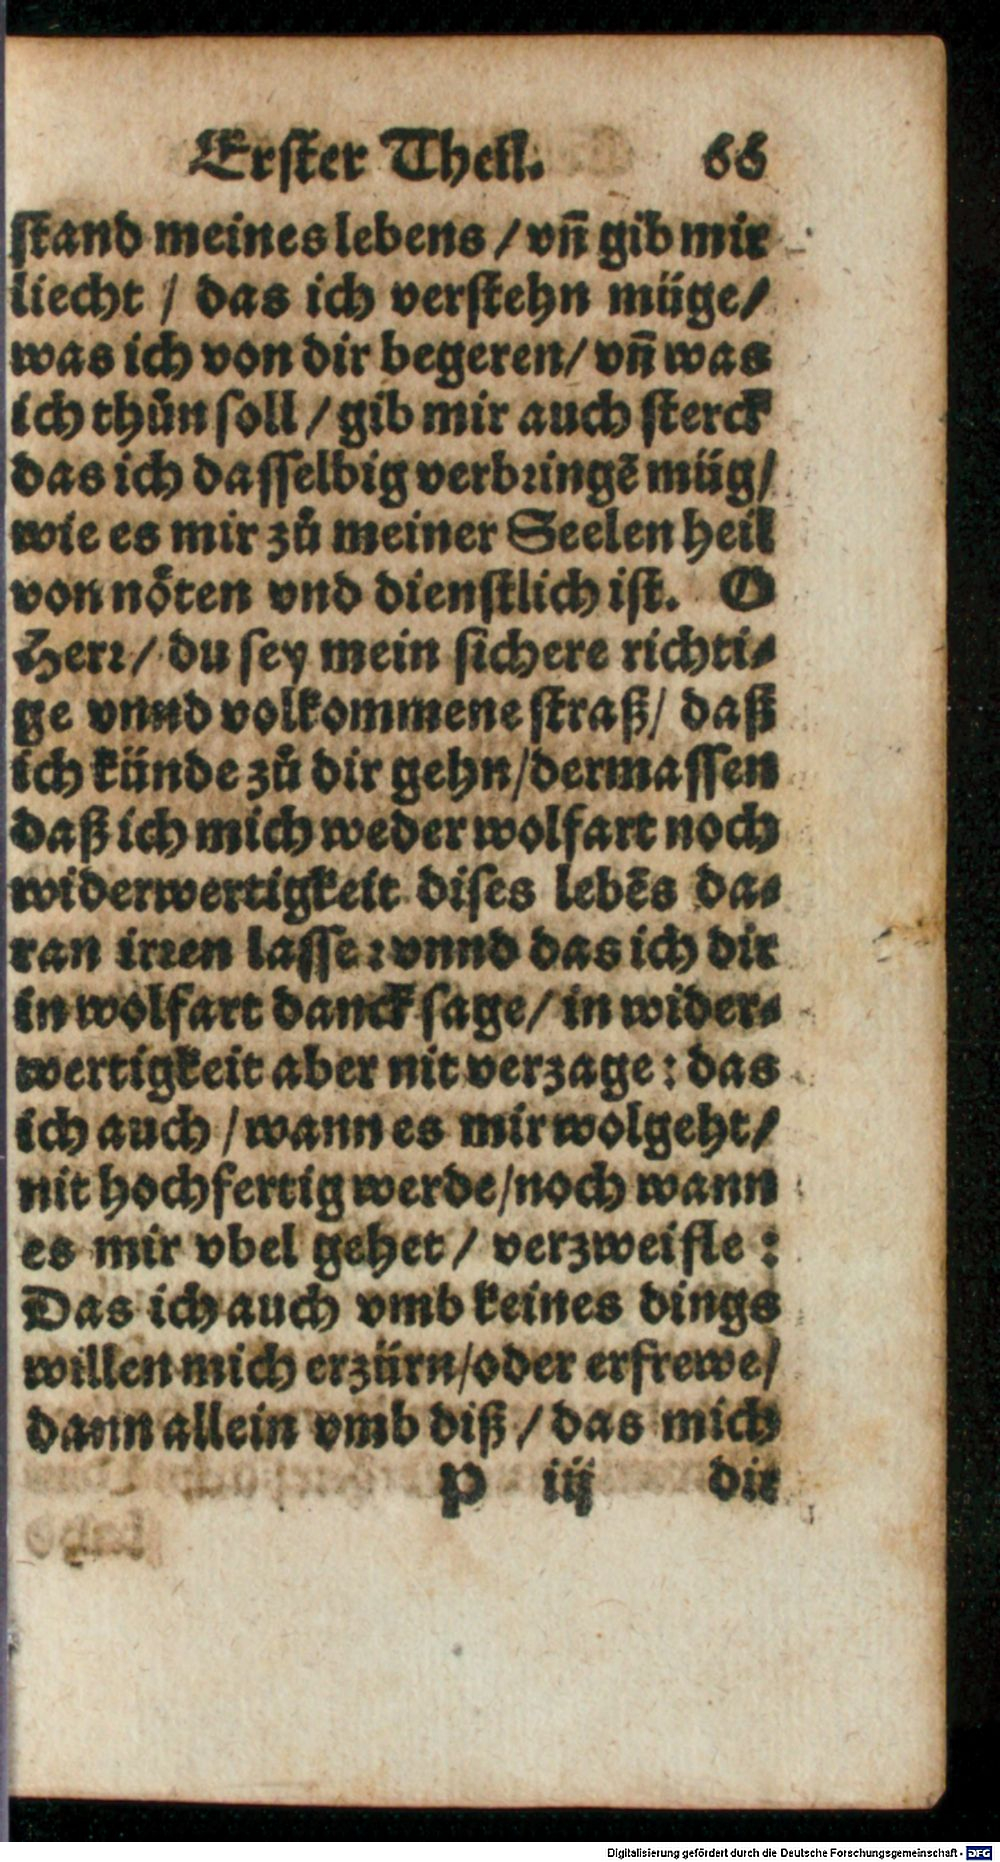 Erster Theil. 66
stand meines lebens / vn̄ gib mir
liecht / das ich verstehn müge /
was ich von dir begeren / vn̄ was
ich thůn soll / gib mir auch sterck
das ich dasselbig verbringē müg /
wie es mir zů meiner Seelen heil
von nöten vnd dienstlich ist. O
Herr / du sey mein sichere richti-
ge vnnd volkommene straß / daß
ich künde zů dir gehn / dermassen
daß ich mich weder wolfart noch
widerwertigkeit dises lebēs da-
ran irren lasse : vnnd das ich dir
in wolfart danck sage / in wider-
wertigkeit aber nit verzage : das
ich auch / wann es mir wolgeht /
nit hochfertig werde / noch wann
es mir vbel gehet / verzweifle :
Das ich auch vmb keines dings
willen mich erzürn / oder erfrewe /
dann allein vmb diß / das mich
P iij dir
Digitalisierung gefördert durch die Deutsche Forschungsgemeinschaft - DFG